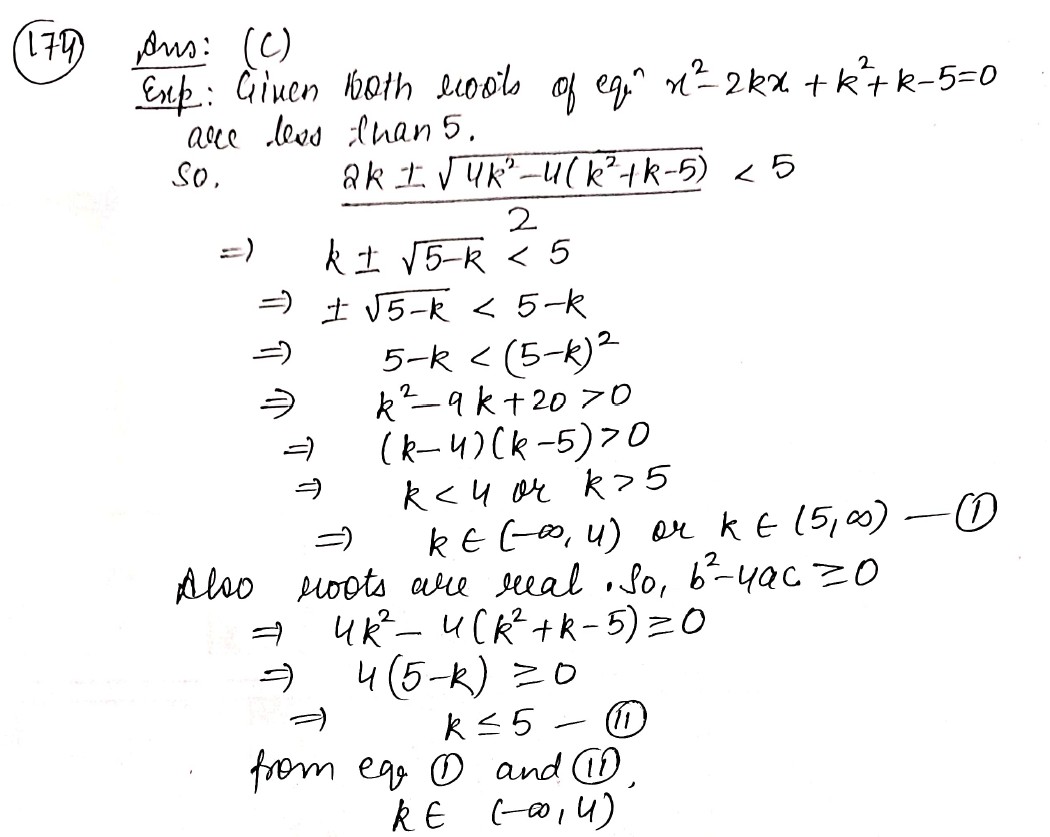 174 Ans: (C)
Exp: Given both roots of eqn x² - 2kx + k² + k - 5 = 0
are less than 5.
So, 2k ± √4k² - 4(k² + k - 5) / 2 < 5
⇒ k ± √5-k < 5
⇒ ± √5-k < 5-k
⇒ 5-k < (5-k)²
⇒ k² - 9k + 20 > 0
⇒ (k-4)(k-5) > 0
⇒ k < 4 or k > 5
⇒ k ∈ (-∞, 4) or k ∈ (5, ∞) — Ⓘ
Also roots are real. So, b² - 4ac ≥ 0
⇒ 4k² - 4(k² + k - 5) ≥ 0
⇒ 4(5-k) ≥ 0
⇒ k ≤ 5 — ⓘⓘ
from eqn Ⓘ and ⓘⓘ,
k ∈ (-∞, 4)